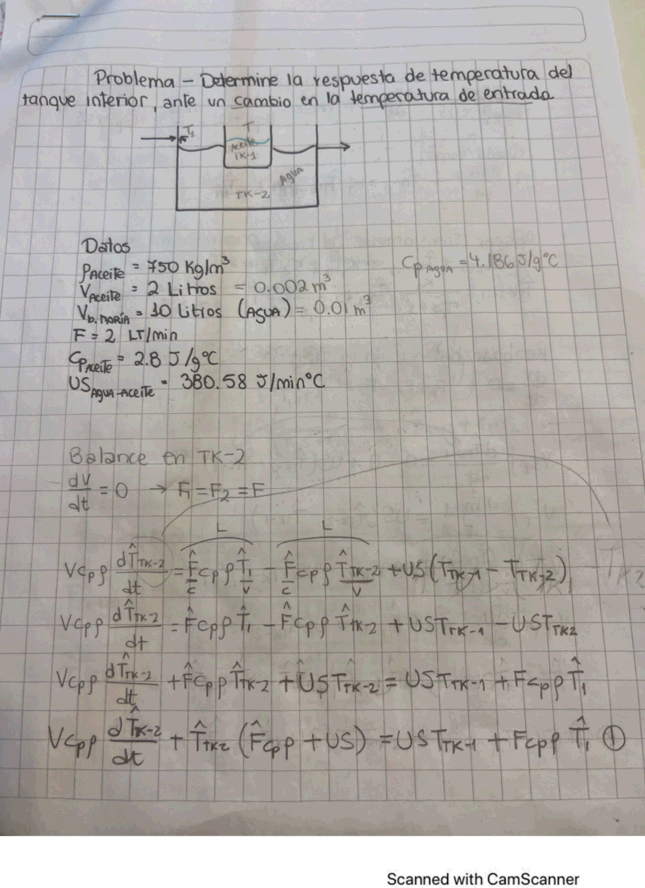 Problema – Determine la respuesta de temperatura del
tanque interior, ante un cambio en la temperatura de entrada
T₁ T
Aceite
TK-1
Agua
TK-2
Datos
ρAceite = 750 Kg/m³
Cp agua = 4.186 J/g°C
VAceite = 2 Litros = 0.002 m³
Vb. maría = 10 Litros (AGUA) = 0.01 m³
F = 2 LT/min
CpAceite = 2.8 J/g°C
USAgua-Aceite = 380.58 J/min°C
Balance en TK-2
dV/dt = 0 → F₁ = F₂ = F
L L
VCpρ dT̂TK-2/dt = F̂cpρT̂₁ - F̂cpρT̂TK-2 + US(TTK-1 - TTK-2)
c v c v
VCpρ dT̂TK-2/dt = F̂cpρT̂₁ - F̂cpρT̂TK-2 + USTTK-1 - USTTK2
VCpρ dT̂TK-2/dt + F̂cpρT̂TK-2 + ÛST̂TK-2 = USTTK-1 + FcpρT̂₁
VCpρ dT̂TK-2/dt + T̂TK2 (F̂cpρ + US) = USTTK-1 + Fcpρ T̂₁ ①
Scanned with CamScanner